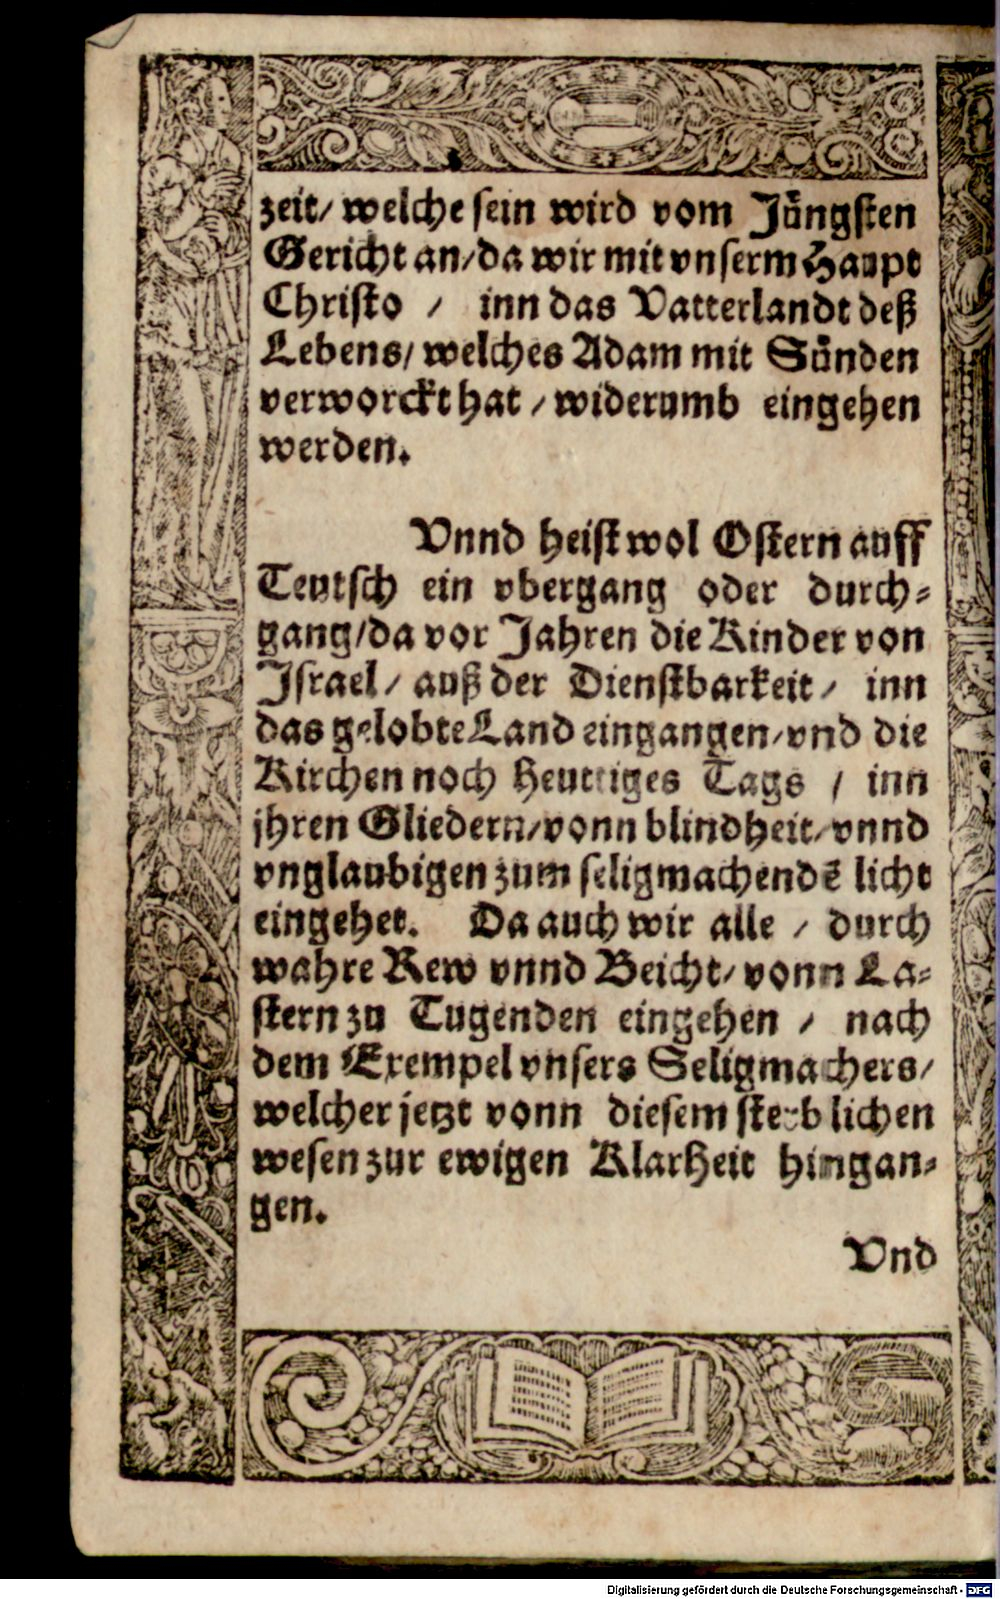 zeit/ welche sein wird vom Jüngsten
Gericht an/da wir mit vnserm Haupt
Christo / inn das Vatterlandt deß
Lebens/ welches Adam mit Sünden
verworckt hat / widerumb eingehen
werden.
Vnnd heist wol Ostern auff
Teutsch ein vbergang oder durch-
gang/da vor Jahren die Kinder von
Israel/ auß der Dienstbarkeit/ inn
das gelobte Land eingangen/vnd die
Kirchen noch heuttiges Tags / inn
jhren Gliedern/vonn blindheit/vnnd
vnglaubigen zum seligmachendē licht
eingehet. Da auch wir alle / durch
wahre Rew vnnd Beicht/ vonn La-
stern zu Tugenden eingehen / nach
dem Exempel vnsers Seligmachers/
welcher jetzt vonn diesem sterblichen
wesen zur ewigen Klarheit hingan-
gen.
Vnd
Digitalisierung gefördert durch die Deutsche Forschungsgemeinschaft - DFG